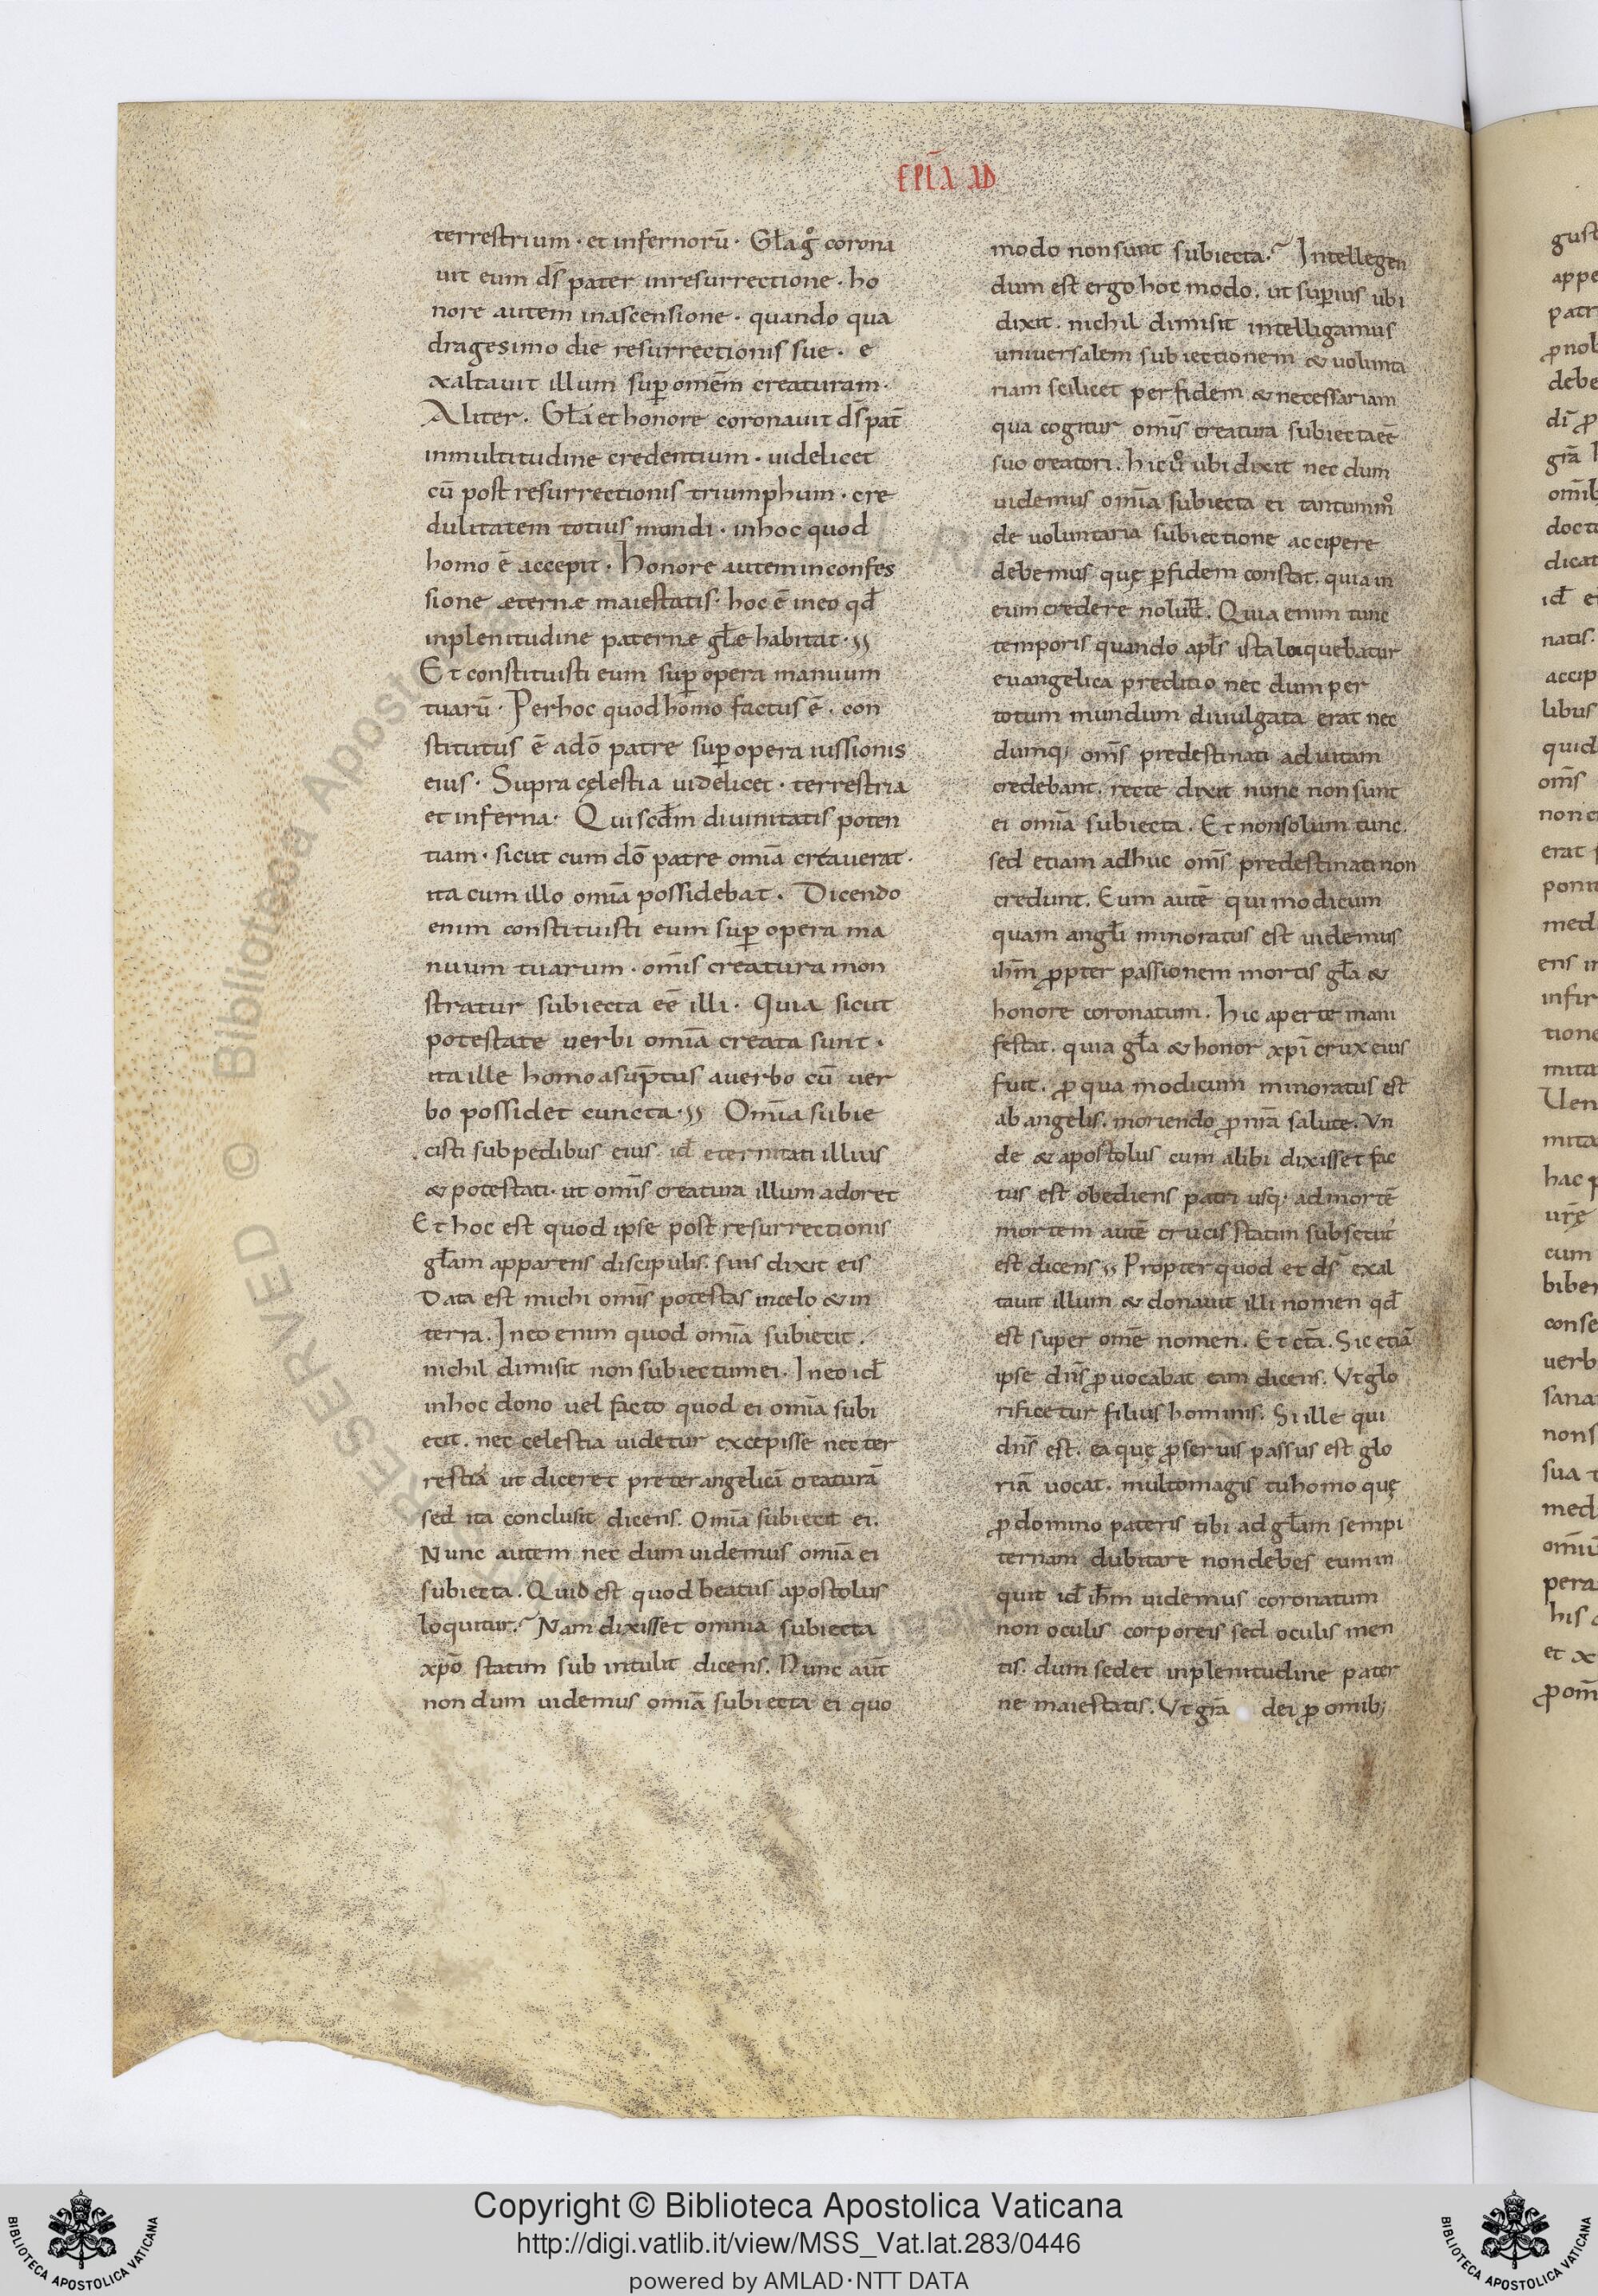 EPLA AD
terrestrium · et infernorū · Gła gͦ corona
uit eum ds̄ pater in resurrectione · ho
nore autem in ascensione · quando qua
dragesimo die resurrectionis sue · e
xaltauit illum sup̄ omēm creaturam ·
Aliter · Głá et honore coronauit ds̄ pat̄
in multitudine credentium · uidelicet
cū post resurrectionis triumphum · cre
dulitatem totius mundi · in hoc quod
homo ē accepit · Honore autem in confes
sione æternæ maiestatis · hoc ē in eo qđ
in plenitudine paternæ głę habitat ·
Et constituisti eum sup̄ opera manuum
tuarū · Per hoc quod homo factus ē · con
stitutus ē a dō patre sup̄ opera iussionis
eius · Supra cęlestia uidelicet · terrestria
et inferna · Qui scđm diuinitatis poten
tiam · sicut cum dō patre omīa creauerat ·
ita cum illo omīa possidebat · Dicendo
enim constituisti eum sup̄ opera ma
nuum tuarum · omīs creatura mon
stratur subiecta eē illi · Quia sicut
potestate uerbi omīa creata sunt ·
ita ille homo asūptus a uerbo cū uer
bo possidet cuncta · Omīa subie
cisti sub pedibus eius · iđ eternitati illius
& potestati · ut omīs creatura illum adoret
Et hoc est quod ipse post resurrectionis
głam apparens discipulis · suis dixit eis
Data est michi omīs potestas in celo & in
terra. In eo enim quod omīa subiecit.
nichil dimisit non subiectum ei · In eo iđ
in hoc dono uel facto quod ei omīa subi
ecit. nec celestia uidetur excepisse nec ter
restia ut diceret preter angelicā creaturā
sed ita conclusit dicens. Omīa subiecit ei.
Nunc autem nec dum uidemus omīa ei
subiecta. Quid est quod beatus apostolus
loquitur? Nam dixisset omnia subiecta
xpō statim sub intulit dicens. Nunc aut̄
non dum uidemus omīa subiecta ei quo
modo non sunt subiecta? Intellegen
dum est ergo hoc modo. ut sup̄ius ubi
dixit. nichil dimisit intelligamus
uniuersalem subiectionem & uolunta
riam scilicet per fidem & necessariam
qua cogitur omīs creatura subiecta eē
suo creatori. Hic uͦ ubi dixit nec dum
uidemus omīa subiecta ei tantummͦ
de uoluntaria subiectione accipere
debemus quę p̄ fidem constat. quia in
eum credere nolunt̄. Quia enim tunc
temporis quando apłs ista loquebatur
euangelica preditio nec dum per
totum mundum diuulgata erat nec
dumq; oms̄ predestinati ad uitam
credebant. recte dixit nunc non sunt
ei omīa subiecta. Et non solum tunc.
sed etiam adhuc oms̄ predestinati non
credunt. Eum autē qui modicum
quam angłi minoratus est uidemus
ihm̄ p̄pter passionem mortis gła &
honore coronatum. Hic aperte mani
festat. quia gła & honor xpī crux eius
fuit. p̄ qua modicum minoratus est
ab angelis. moriendo p̄ nrā salute. Vn
de & apostolus cum alibi dixisset fac
tus est obediens patri usq; ad mortē
mortem autē crucis statim subsecut'
est dicens Propter quod et ds̄ exal
tauit illum & donauit illi nomen qđ
est super omē nomen. Et cēta. Sic etiā
ipse dns̄ p̄uocabat eam dicens. Vt glo
rificetur filius hominis. Si ille qui
dns̄ est. ea quę p̄ seruis passus est glo
riā uocat. multo magis tu homo quę
p̄ domino pateris tibi ad głam sempi
ternam dubitare non debes eum in
quit iđ ihm̄ uidemus coronatum
non oculis corporeis sed oculis men
tis. dum sedet in plenitudine pater
ne maiestatis. Vt grā dei p̄ omib;
Copyright © Biblioteca Apostolica Vaticana
http://digi.vatlib.it/view/MSS_Vat.lat.283/0446
powered by AMLAD·NTT DATA